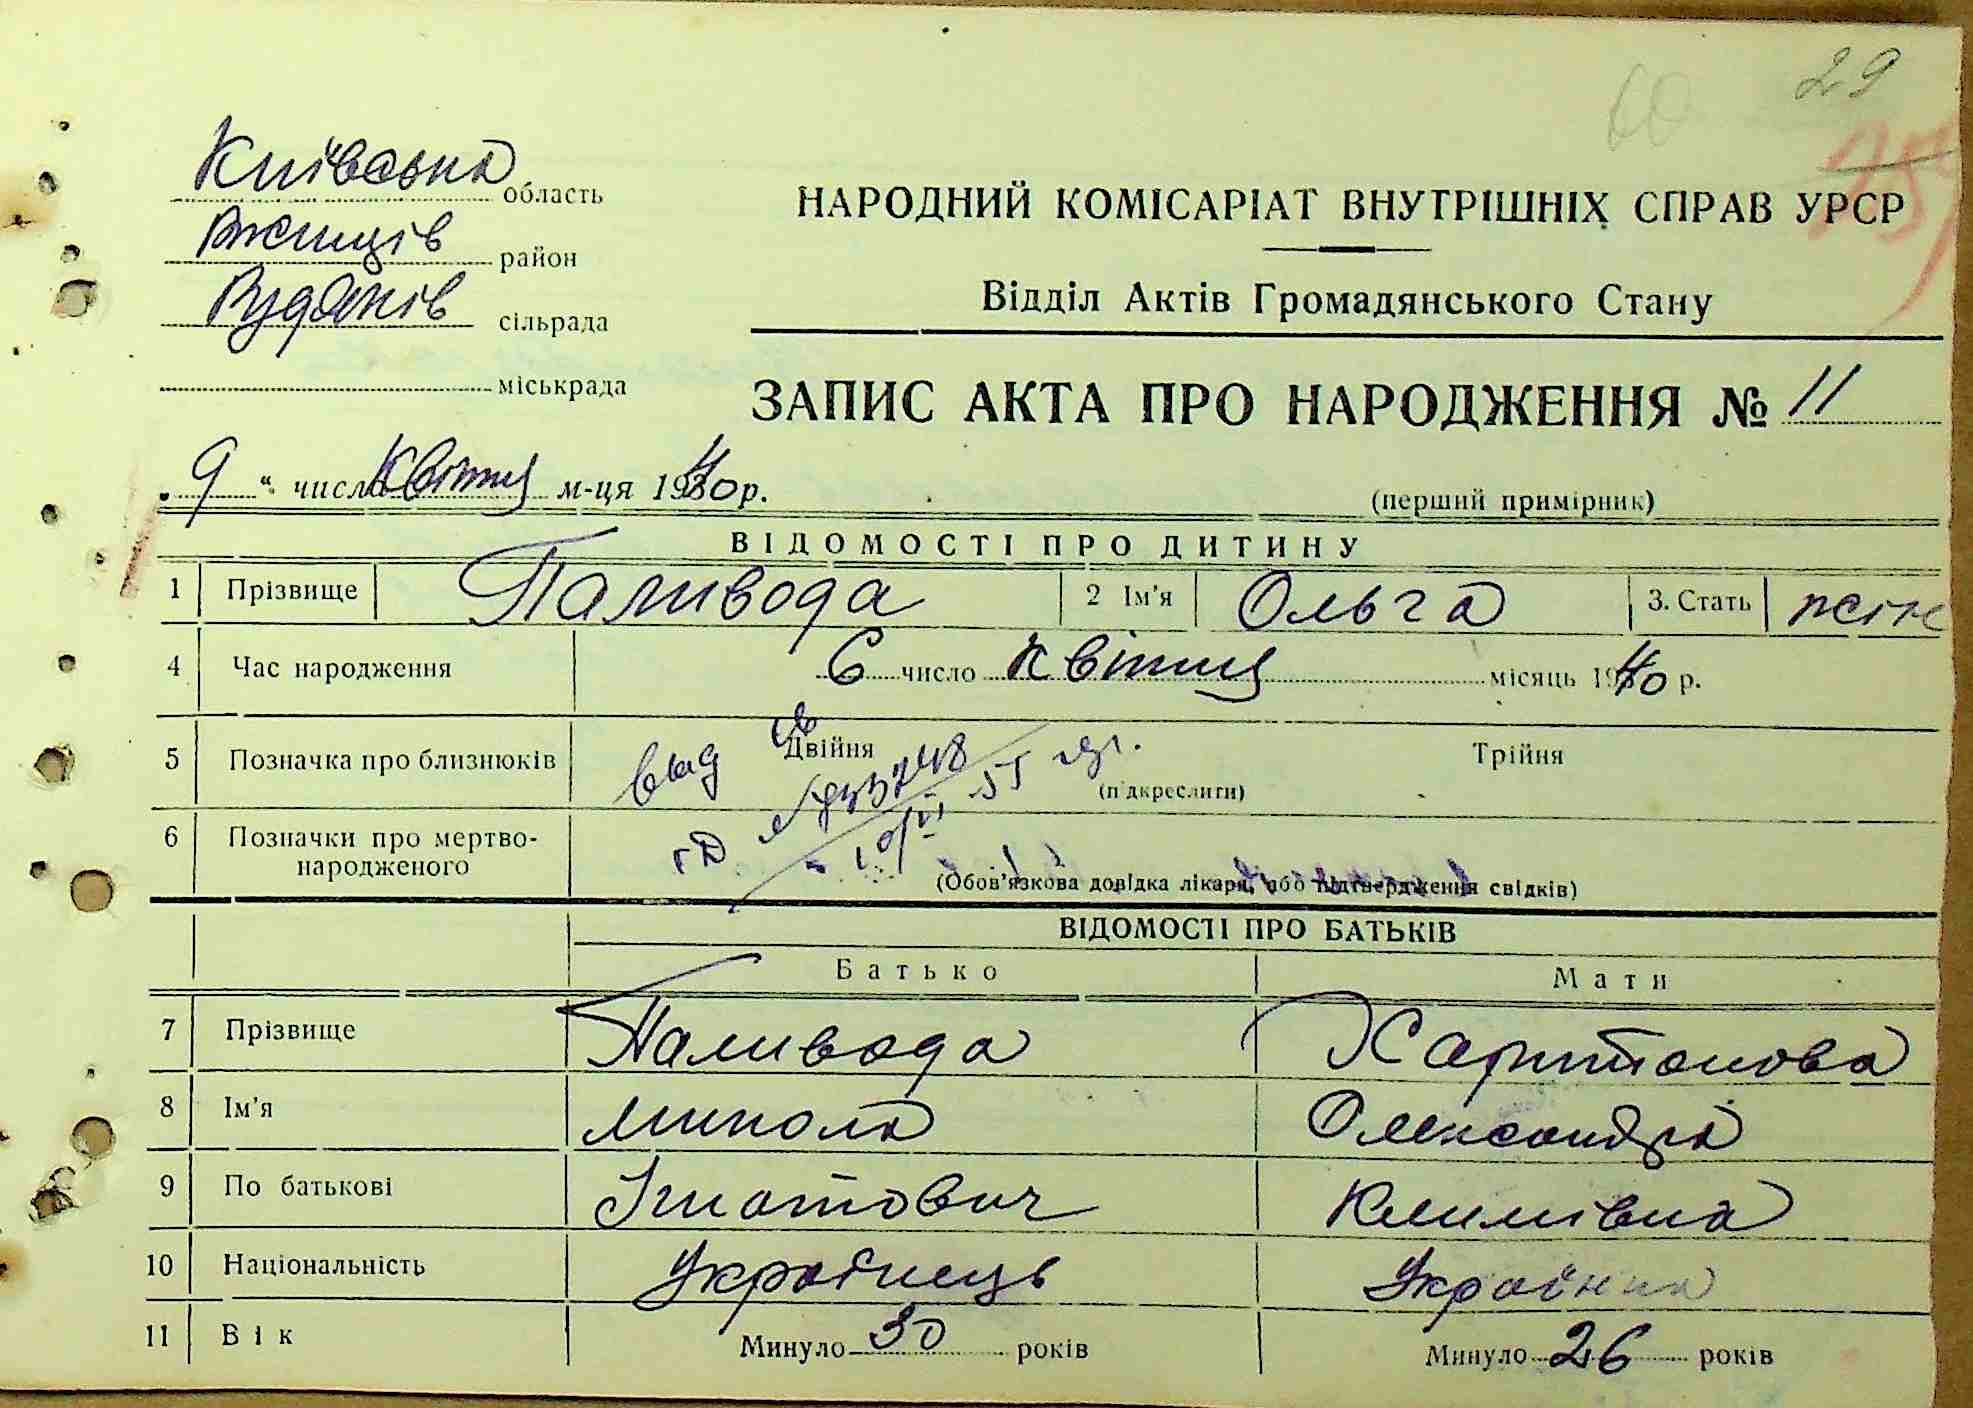 29
60
Київська область
район
сільрада
міськрада
НАРОДНИЙ КОМІСАРІАТ ВНУТРІШНІХ СПРАВ УРСР
Відділ Актів Громадянського Стану
ЗАПИС АКТА ПРО НАРОДЖЕННЯ № 11
„ 9 “ числа квітня м-ця 1940 р.
(перший примірник)
ВІДОМОСТІ ПРО ДИТИНУ
1 Прізвище Паливода 2 Ім'я Ольга 3. Стать жін
4 Час народження 6 число квітня місяць 1940 р.
5 Позначка про близнюків Двійня Трійня
(підкреслити)
выд св
55
6 Позначки про мертво-
народженого
(Обов'язкова довідка лікаря, або підтвердження свідків)
ВІДОМОСТІ ПРО БАТЬКІВ
Батько Мати
7 Прізвище Паливода Харитонова
8 Ім'я Микола Олександра
9 По батькові Ігнатович Климівна
10 Національність Українець Українка
11 Вік Минуло 30 років Минуло 26 років